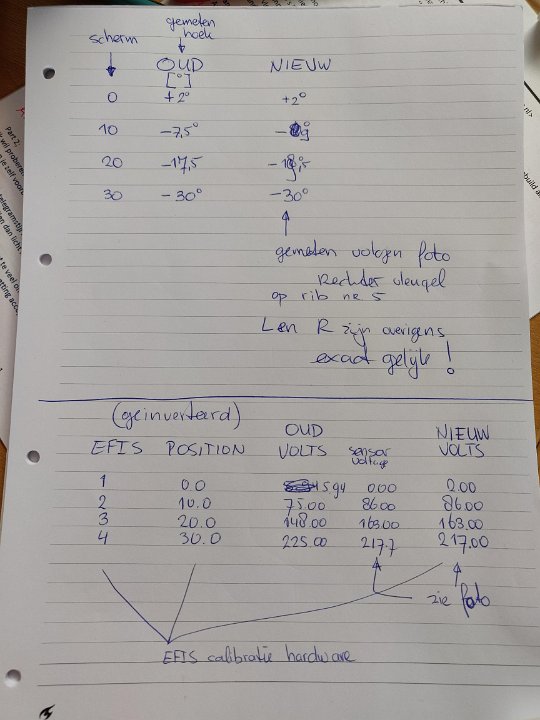 gemeten
hoek
scherm
OUD NIEUW
[°]
0 +2° +2°
10 -7,5° -9°
20 -17,5
30 -30° -30°
gemeten volgen foto
Rechter vleugel
op rib nr. 5
L en R zijn overigens
exact gelijk!
(geinverteerd)
OUD NIEUW
EFIS POSITION VOLTS sensor VOLTS
voltage
1 0.0 0.00
2 10.0 75.00 86.00 86.00
3 20.0 148.00 163.00 163.00
4 30.0 225.00 217.7 217.00
zie foto
EFIS calibratie hardware
Part 2,